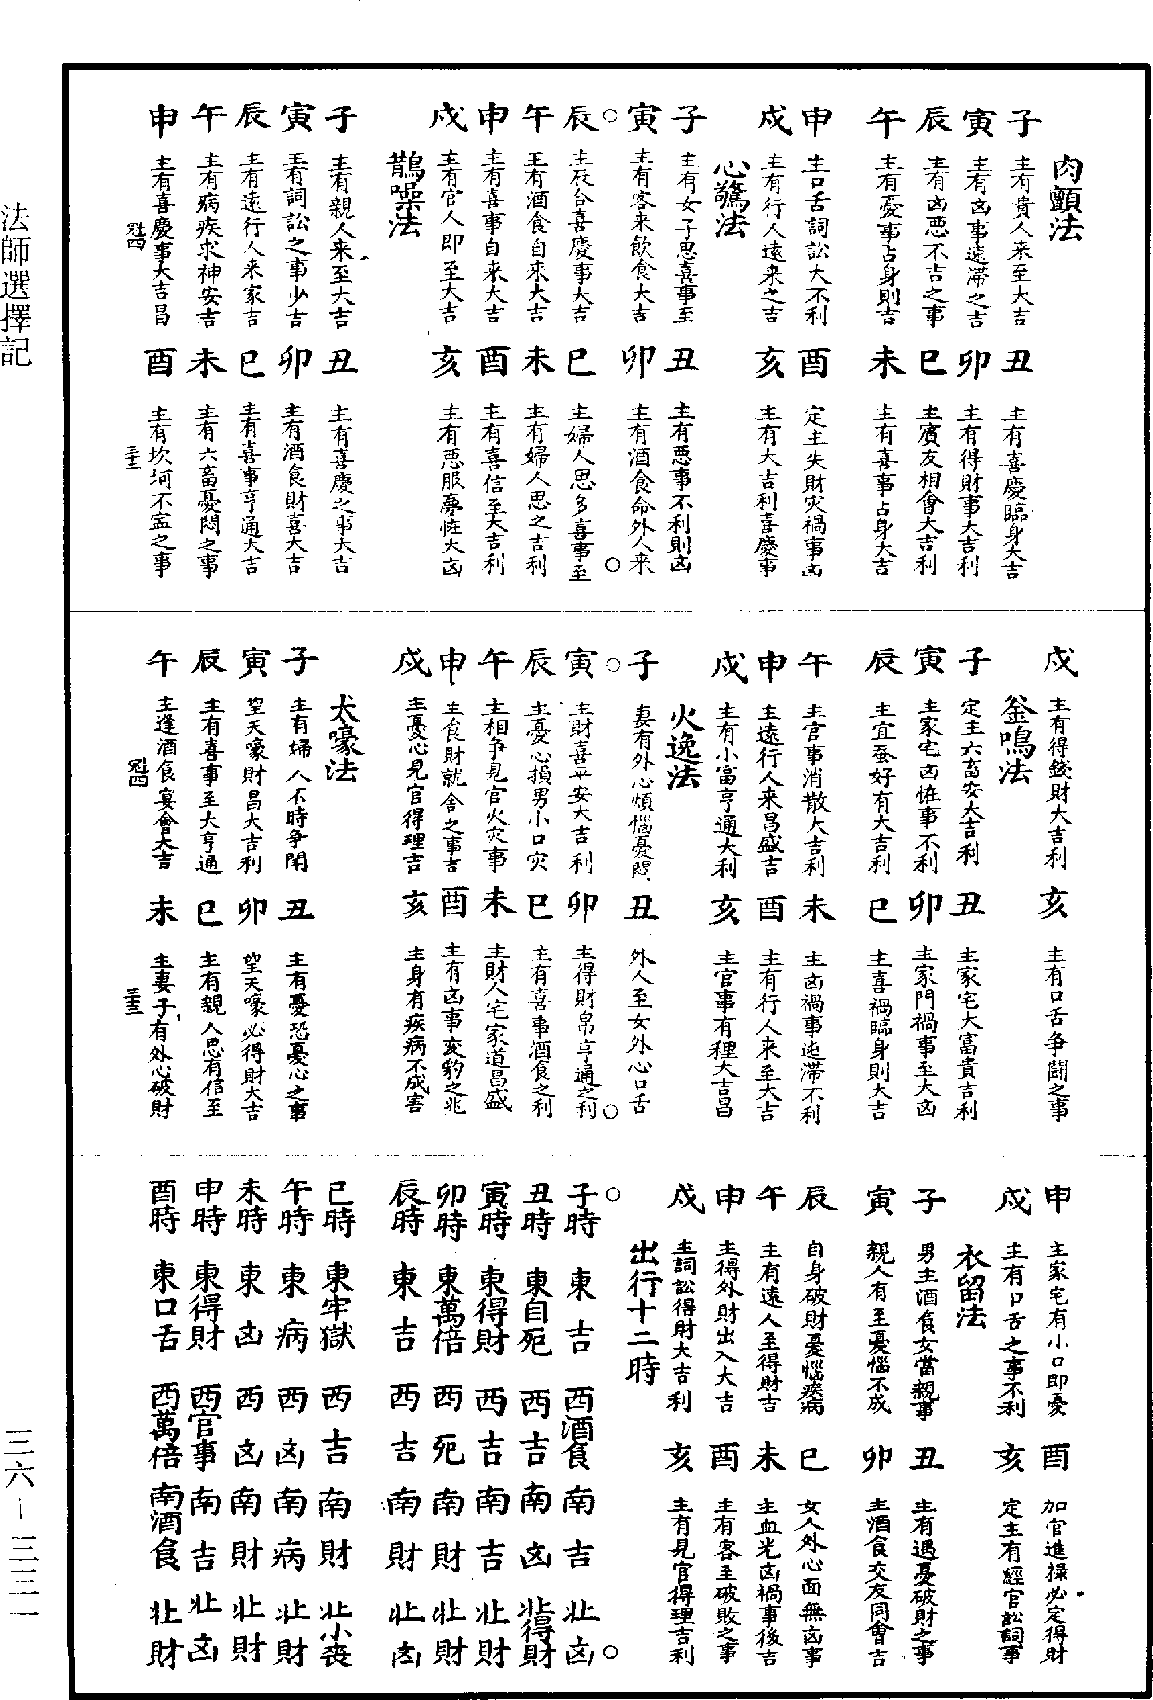 肉顫法
子 主有貴人来至大吉 丑 主有喜慶臨身大吉
寅 主有凶事遠滯之吉 卯 主有得財事大吉利
辰 主有凶惡不吉之事 巳 主賓友相會大吉利
午 主有憂事占身則吉 未 主有喜事占身大吉
申 主口舌詞訟大不利 酉 定主失財灾禍事凶
戌 主有行人遠来之吉 亥 主有大吉利喜慶事
心驚法
子 主有女子思喜事至 丑 主有惡事不利則凶
寅 主有客来飲食大吉 卯 主有酒食命外人来
辰 主 合喜慶事大吉 巳 主婦人思多喜事至
午 主有酒食自来大吉 未 主有婦人思之吉利
申 主有喜事自来大吉 酉 主有喜信至大吉利
戌 主有官人即至大吉 亥 主有惡服夢怪大凶
鵲噪法
子 主有親人来至大吉 丑 主有喜慶之事大吉
寅 主有詞訟之事少吉 卯 主有酒食財喜大吉
辰 主有遠行人来家吉 巳 主有喜事亨通大吉
午 主有病疾求神安吉 未 主有六畜憂悶之事
申 主有喜慶事大吉昌 酉 主有坎坷不寍之事
戌 主有得錢財大吉利 亥 主有口舌争鬪之事
釜鳴法
子 定主六畜安大吉利 丑 主家宅大富貴吉利
寅 主家宅凶怪事不利 卯 主家門禍事至大凶
辰 主宜蚕好有大吉利 巳 主喜禍臨身則大吉
午 主官事消散大吉利 未 主凶禍事遠滯不利
申 主遠行人来昌盛吉 酉 主有行人来至大吉
戌 主有小富亨通大利 亥 主官事有理大吉昌
火逸法
子 妻有外心煩惱憂悶 丑 外人至女外心口舌
寅 主財喜平安大吉利 卯 主得財帛亨通之利
辰 主憂心損男小口灾 巳 主有喜事酒食之利
午 主相争見官火灾事 未 主財人宅家道昌盛
申 主食財就舍之事吉 酉 主有凶事 之兆
戌 主憂心見官得理吉 亥 主身有疾病不成害
犬嚎法
子 主有婦人不時争鬧 丑 主有憂恐憂心之事
寅 望天嚎財昌大吉利 卯 望天嚎必得財大吉
辰 主有喜事至大亨通 巳 主有親人思有信至
午 主逢酒食宴會大吉 未 主妻子有外心破財
申 主家宅有小口即憂 酉 加官進禄必定得財
戌 主有口舌之事不利 亥 定主有經官訟詞事
衣留法
子 男主酒食女當親事 丑 主有遇憂破財之事
寅 親人有至憂惱不成 卯 主酒食交友同會吉
辰 自身破財憂惱 病 巳 女人外心面無凶事
午 主有遠人至得財吉 未 主血光凶禍事後吉
申 主得外財出入大吉 酉 主有客至破敗之事
戌 主詞訟得財大吉利 亥 主有見官得理吉利
出行十二時
子時 東吉 西酒食 南吉 北凶
丑時 東自死 西吉 南凶 北得財
寅時 東得財 西吉 南吉 北財
卯時 東萬倍 西死 南財 北財
辰時 東吉 西吉 南財 北凶
巳時 東牢獄 西吉 南財 北小喪
午時 東病 西凶 南病 北財
未時 東凶 西凶 南財 北財
申時 東得財 西官事 南吉 北凶
酉時 東口舌 西萬倍 南酒食 北財
法師選擇記
三六－三三一